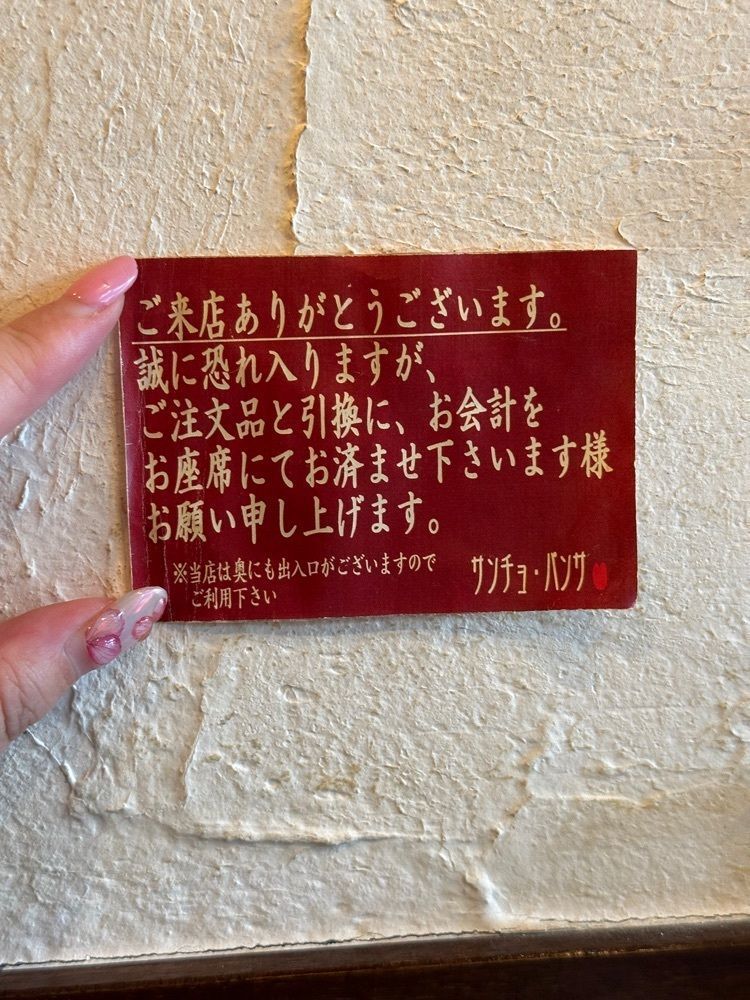 ご来店ありがとうございます。
誠に恐れ入りますが、
ご注文品と引換に、お会計を
お座席にてお済ませ下さいます様
お願い申し上げます。
※当店は奥にも出入口がございますので
ご利用下さい
サンチョ・パンサ